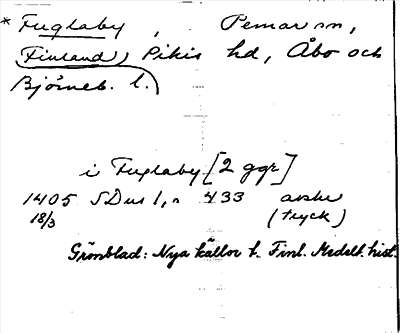 * Fuglaby, Pemar sn,
Finland, Pikis hd, Åbo och
Björneb. l.
i Fuglaby [2 ggr]
1405 SDns 1, s 433 avskr
18/3 (tryck)
Grönblad: Nya källor t. Finl. Medelt. hist.